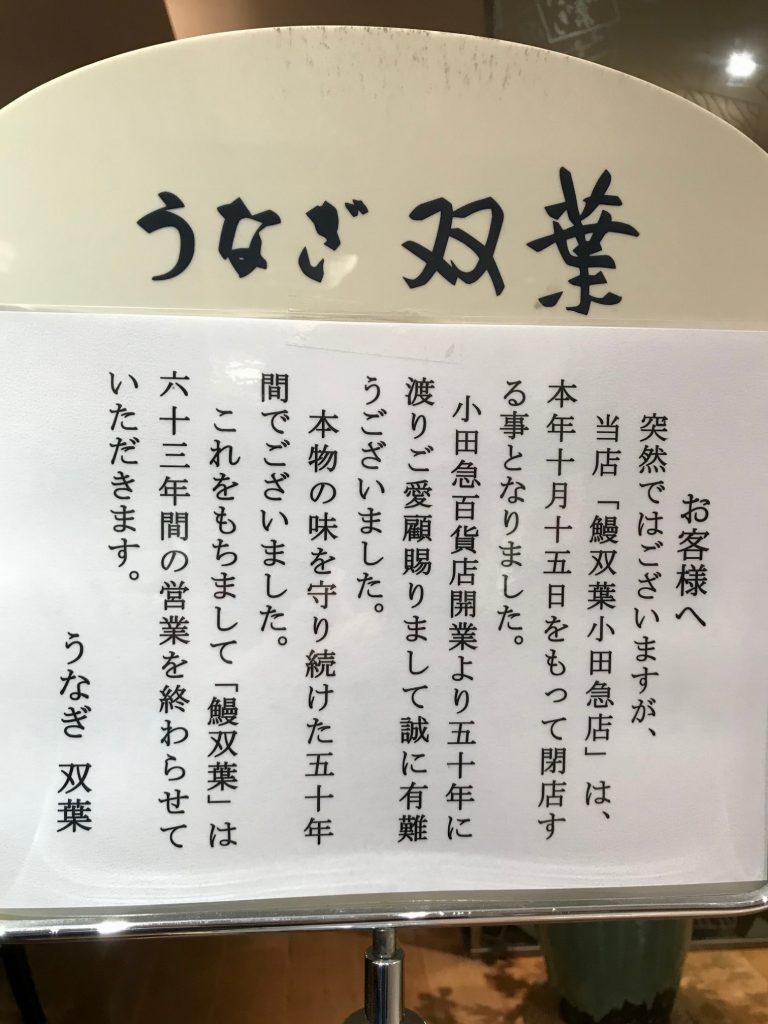 うなぎ 双葉
お客様へ
突然ではございますが、
当店「鰻双葉小田急店」は、
本年十月十五日をもって閉店す
る事となりました。
小田急百貨店開業より五十年に
渡りご愛顧賜りまして誠に有難
うございました。
本物の味を守り続けた五十年
間でございました。
これをもちまして「鰻双葉」は
六十三年間の営業を終わらせて
いただきます。
うなぎ 双葉